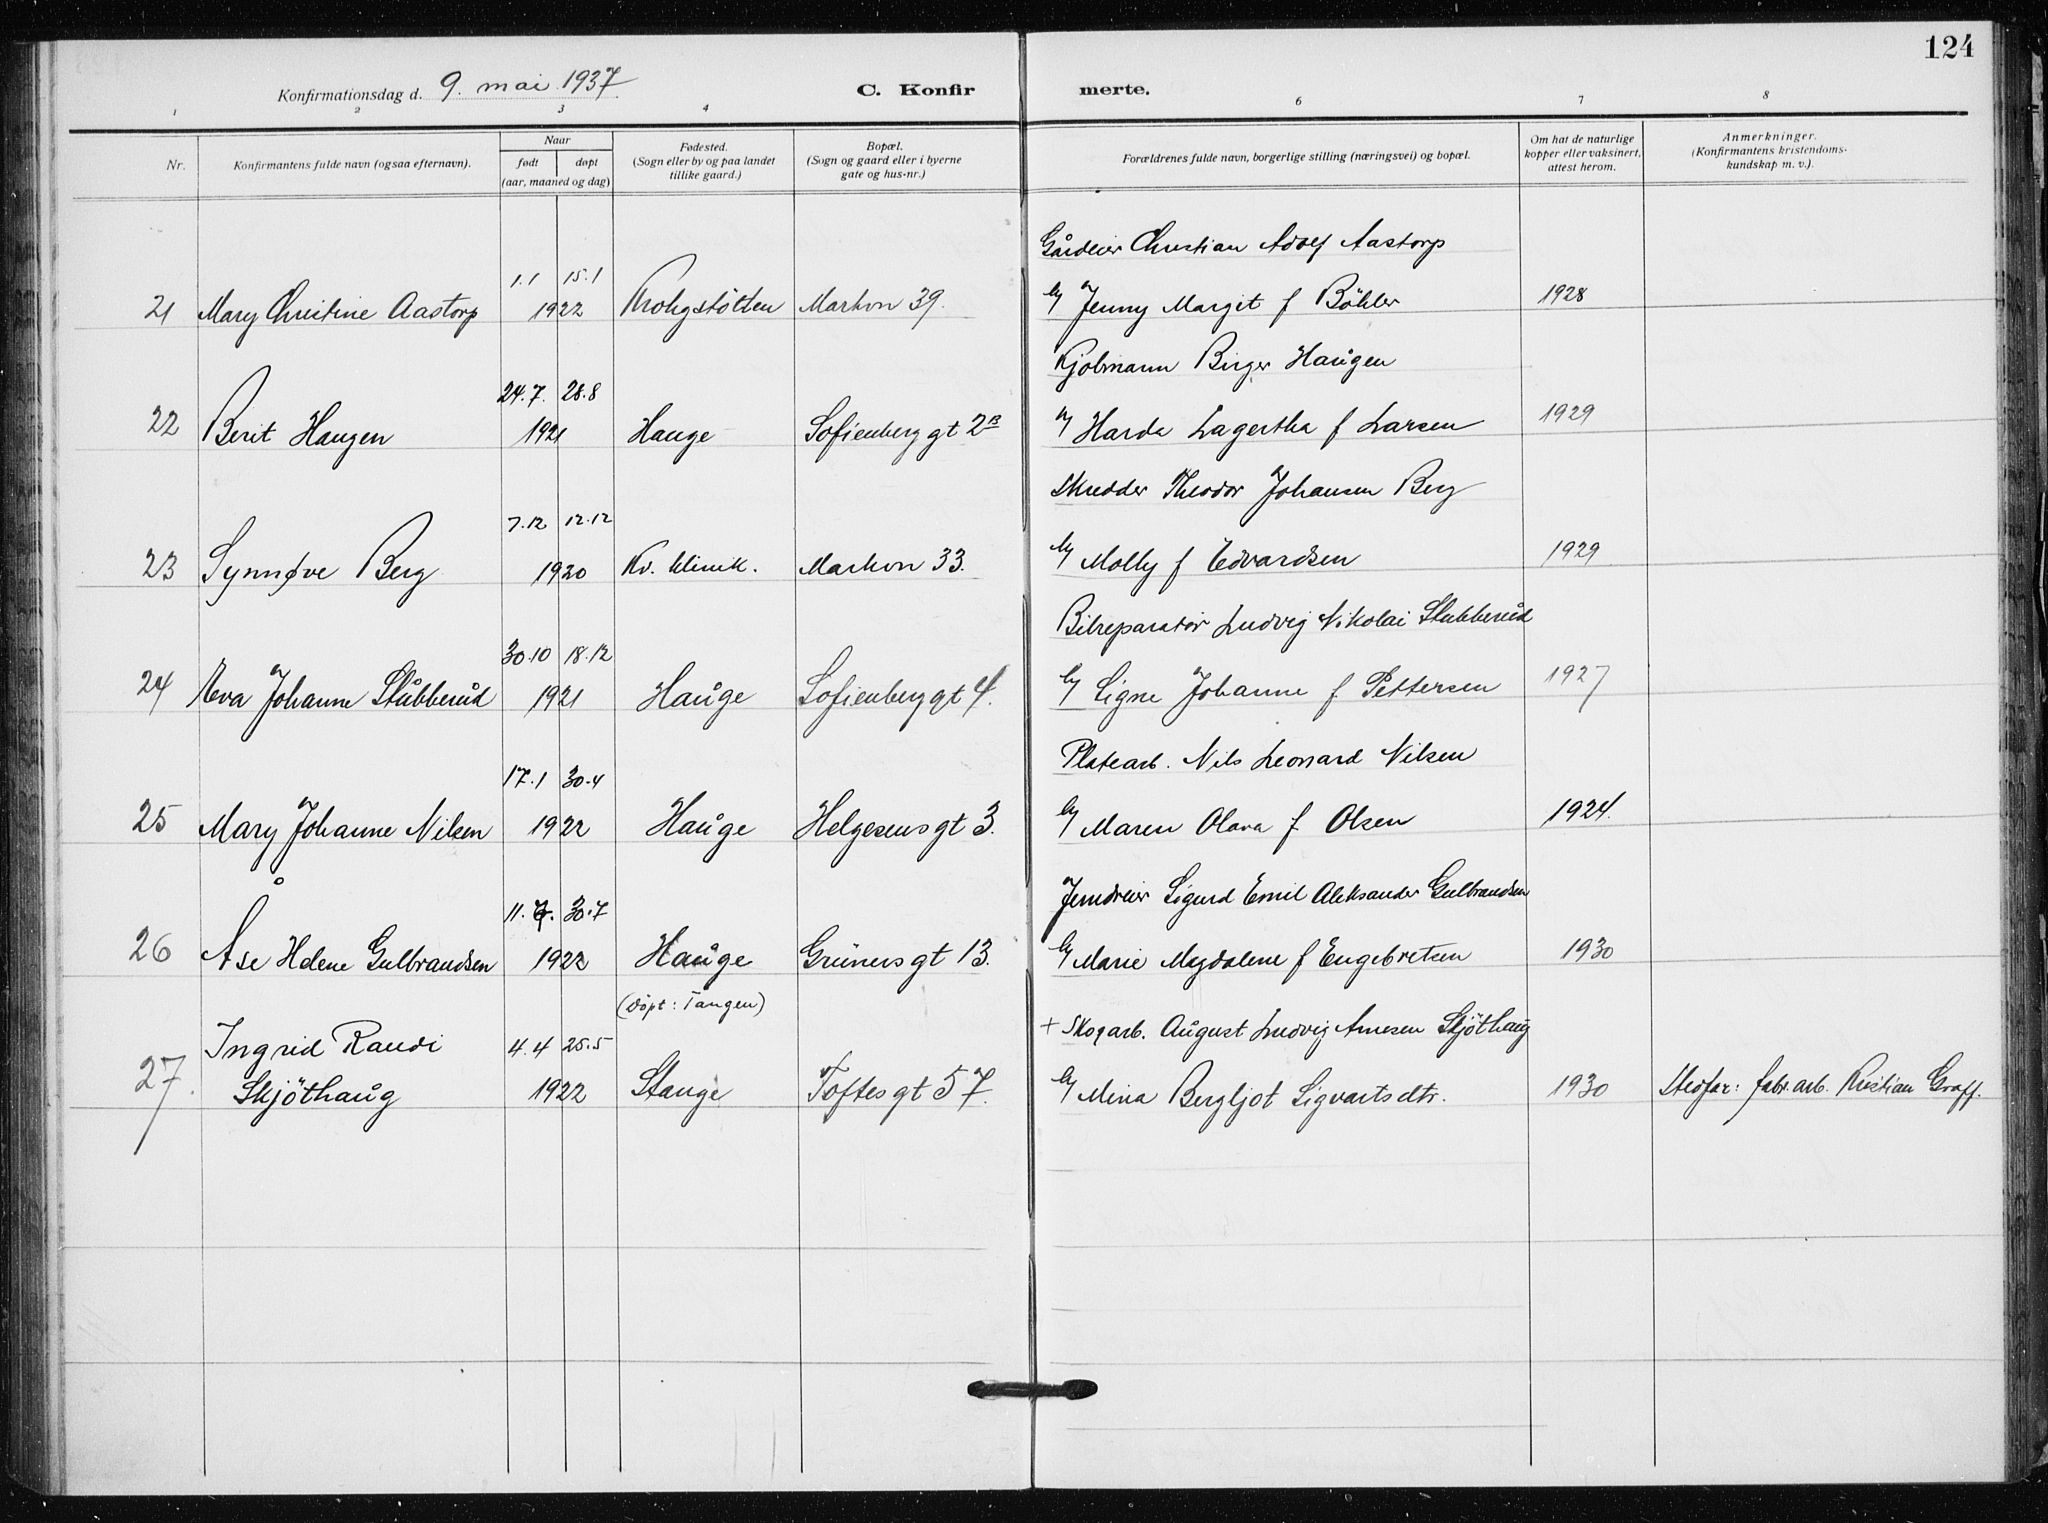 124
Konfirmationsdag d. 9. mai 1937
C. Konfirmerte.
1 2 3 4 6 7 8
Nr.
Konfirmantens fulde navn (ogsaa efternavn).
Naar
født døpt
(aar, maaned og dag)
Fødested.
(Sogn eller by og paa landet
tillike gaard.)
Bopæl.
(Sogn og gaard eller i byerne
gate og hus-nr.)
Forældrenes fulde navn, borgerlige stilling (næringsvei) og bopæl.
Om hat de naturlige
kopper eller vaksinert,
attest herom.
Anmerkninger.
(Konfirmantens kristendoms-
kundskap m. v.).
Gårdeier Christian Adolf Aastorp
1.1 15.1
21 Mary Christine Aastorp 1922 Krohgstötten Markvn 39. Jenny Margit f Böhler 1928
Kjölmann Birger Haugen
24.7. 28.8
22 Berit Haugen 1921 Hauge Sofienberg gt 2B Harda Lagertha f Larsen 1929
Skredder Theodor Johansen Berg
7.12 12.12
23 Synnøve Berg 1920 Kv. klinik. Markvn 33. Molly f Edvardsen 1929
Bilreparatör Ludvig Nikolai Stubberud
30.10 18.12
24 Eva Johanne Stubberud 1921 Hauge Sofienberg gt 4. Signe Johanne f Pettersen 1927
Platearb. Nils Leonard Nilsen
17.1 30.4
25 Mary Johanne Nilsen 1922 Hauge Helgesens gt 3. Maren Olava f Olsen 1924.
Jerndreier Sigurd Emil Aleksander Gulbrandsen
11.7. 30.7
26 Åse Helene Gulbrandsen 1922 Hauge Grüners gt 13. Marie Magdalene f Engebretsen 1930
(döpt: Tangen)
+ Skogarb. August Ludvig Arnesen Skjöthaug
Ingrid Randi 4.4 25.5
27. Skjöthaug 1922 Stange Toftes gt 57. Mina Bergljot Sigvartsdtr. 1930 Stedfar: fabr.arb. Kristian Graff.